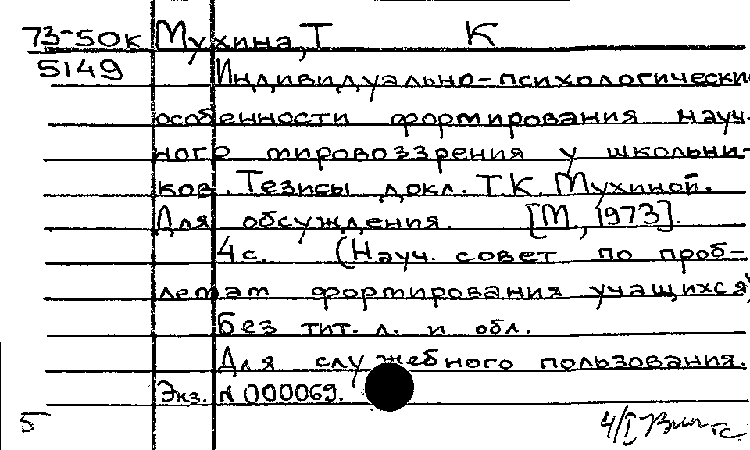 73-50к Мухина, Т К
5149 Индивидуально-психологически
особенности формирования науч-
ного мировоззрения у школьни-
ков. Тезисы докл. Т.К. Мухиной.
Для обсуждения. [М., 1973].
4 с. (Науч. совет по проб-
лемам формирования учащихся)
Без тит. л. и обл.
Для служебного пользования.
Экз. N 000069.
5 4/I